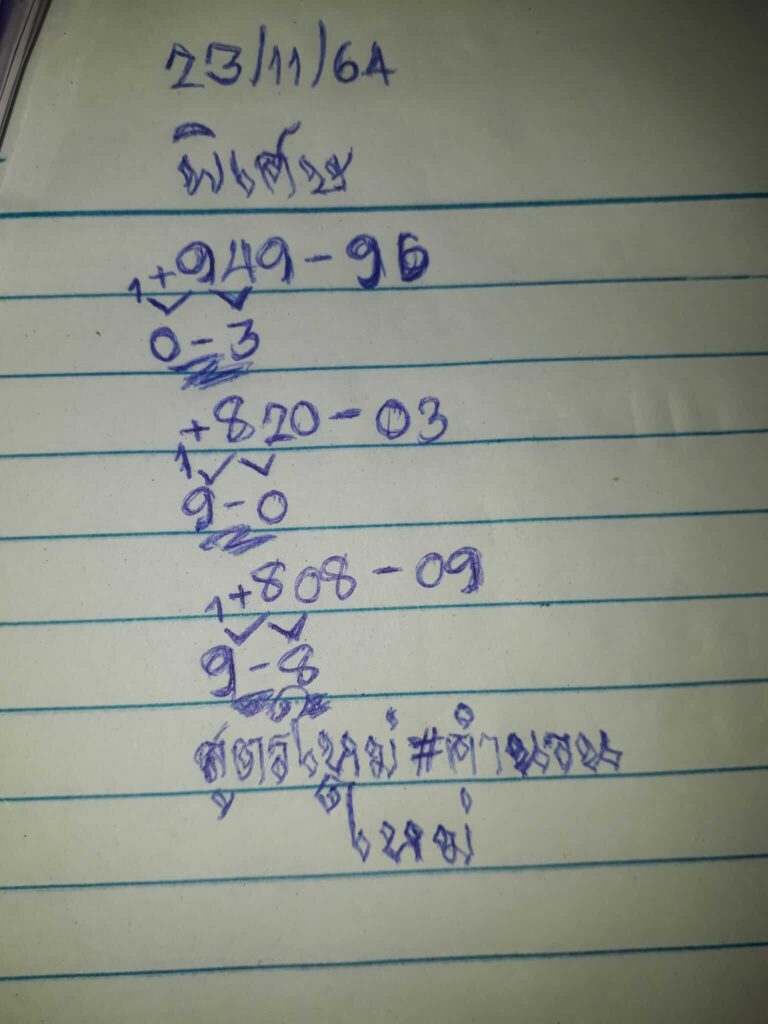 23/11/64
พิเศษ
1+949-96
0-3
1+820-03
9-0
1+808-09
9-8
สูตรใหม่#คำนวน
ใหม่